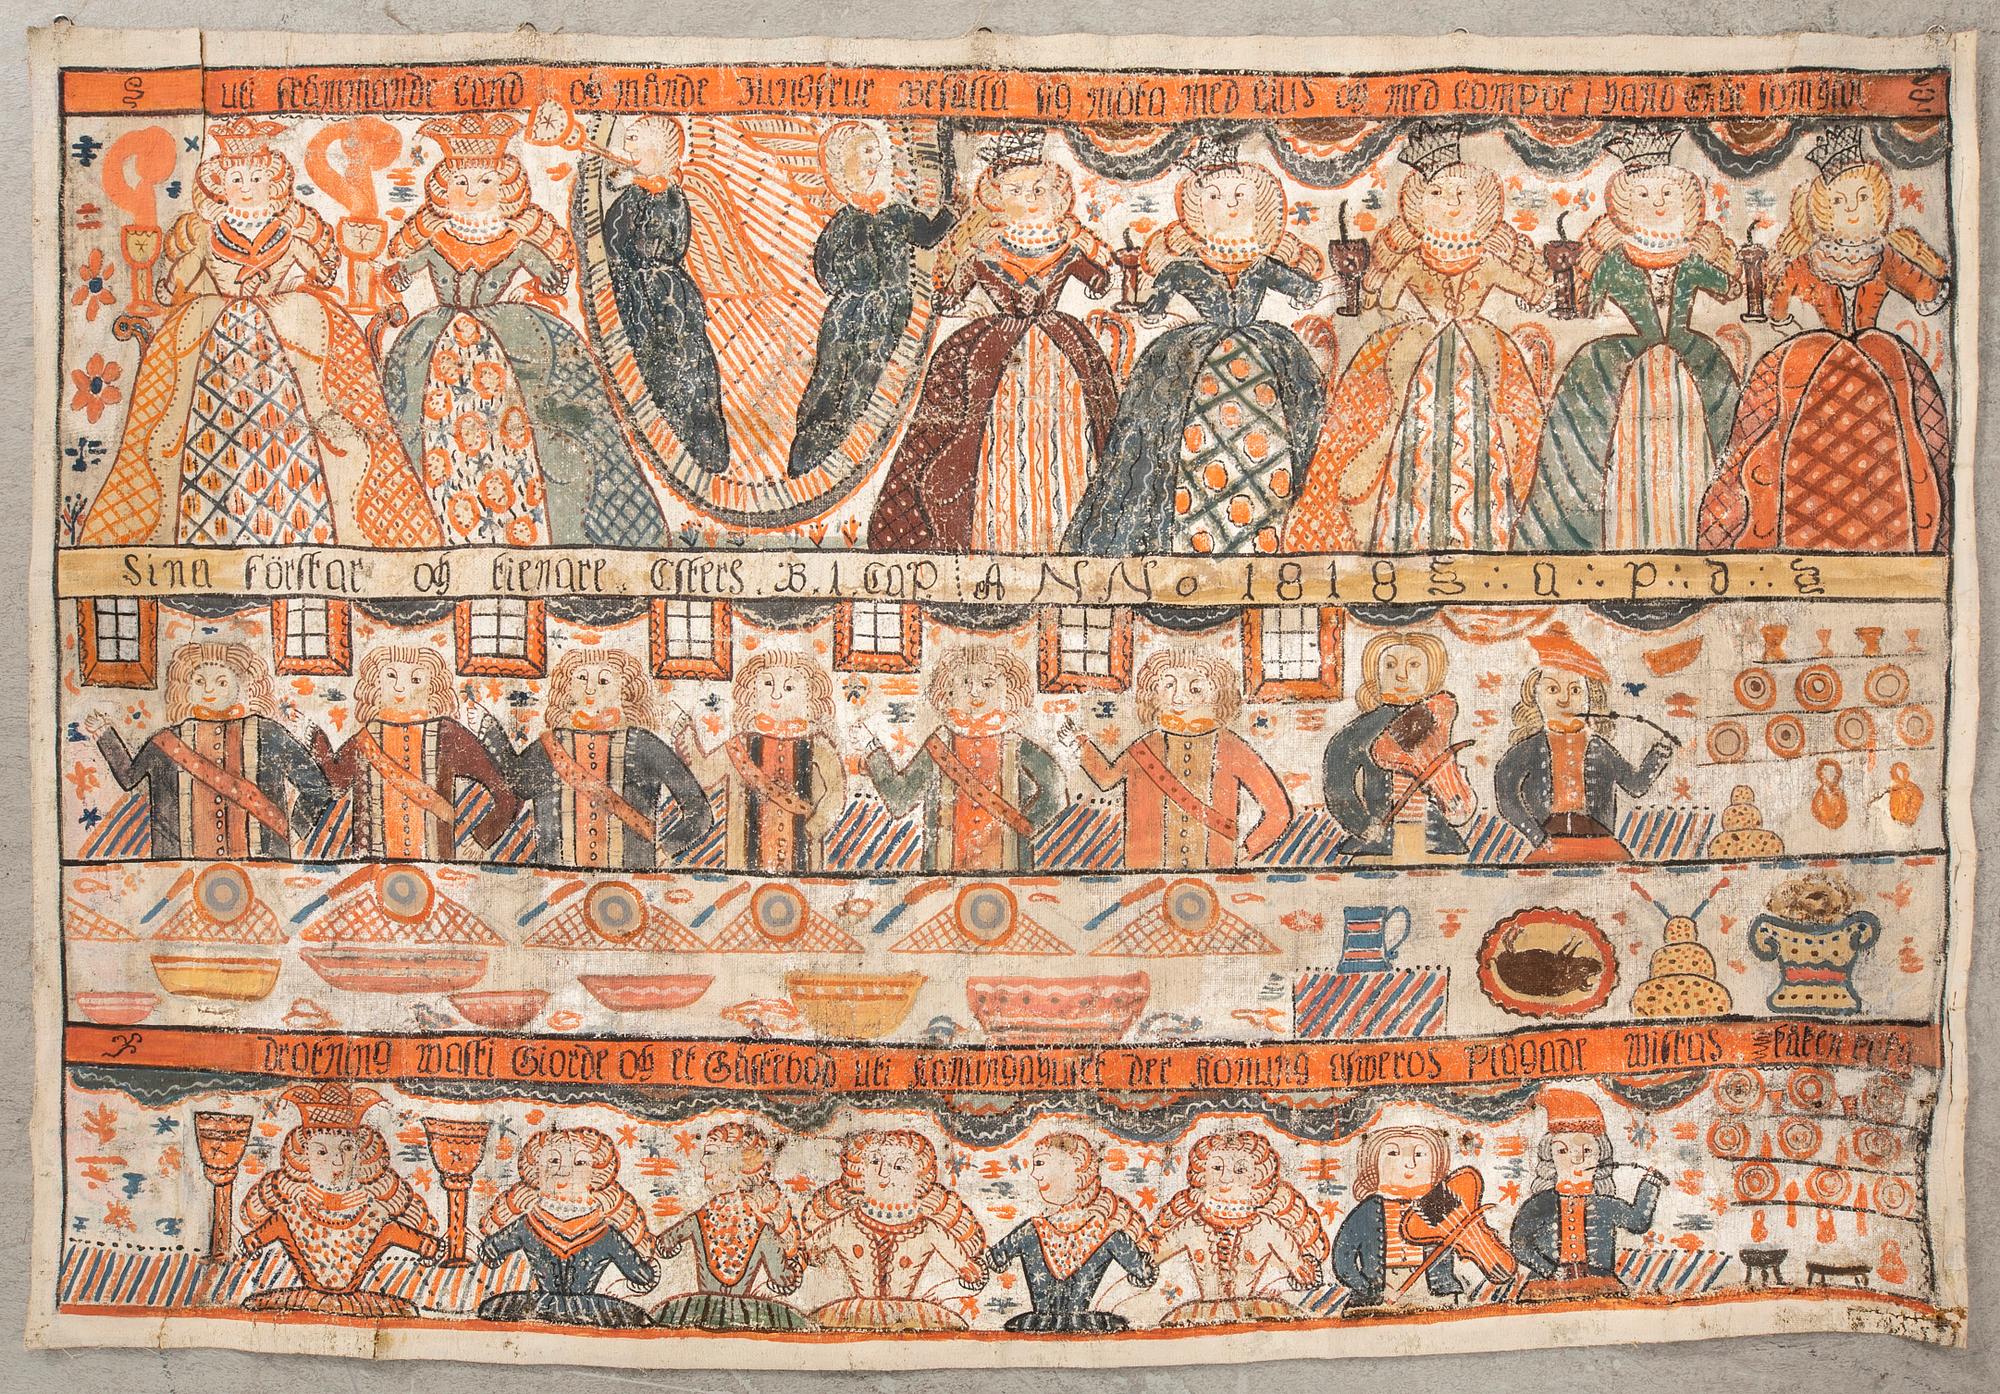 uti främmande Land och månde Jungfrur Befalla sig möta med Lius og med Lampor
Sina Förstar och tienare. Esters. B. 1. Cap ANNo 1818 : a : p : d :
drotning wasti Giorde och et Gästebod uti Konungahuset der Konung asweros Plägade wistas